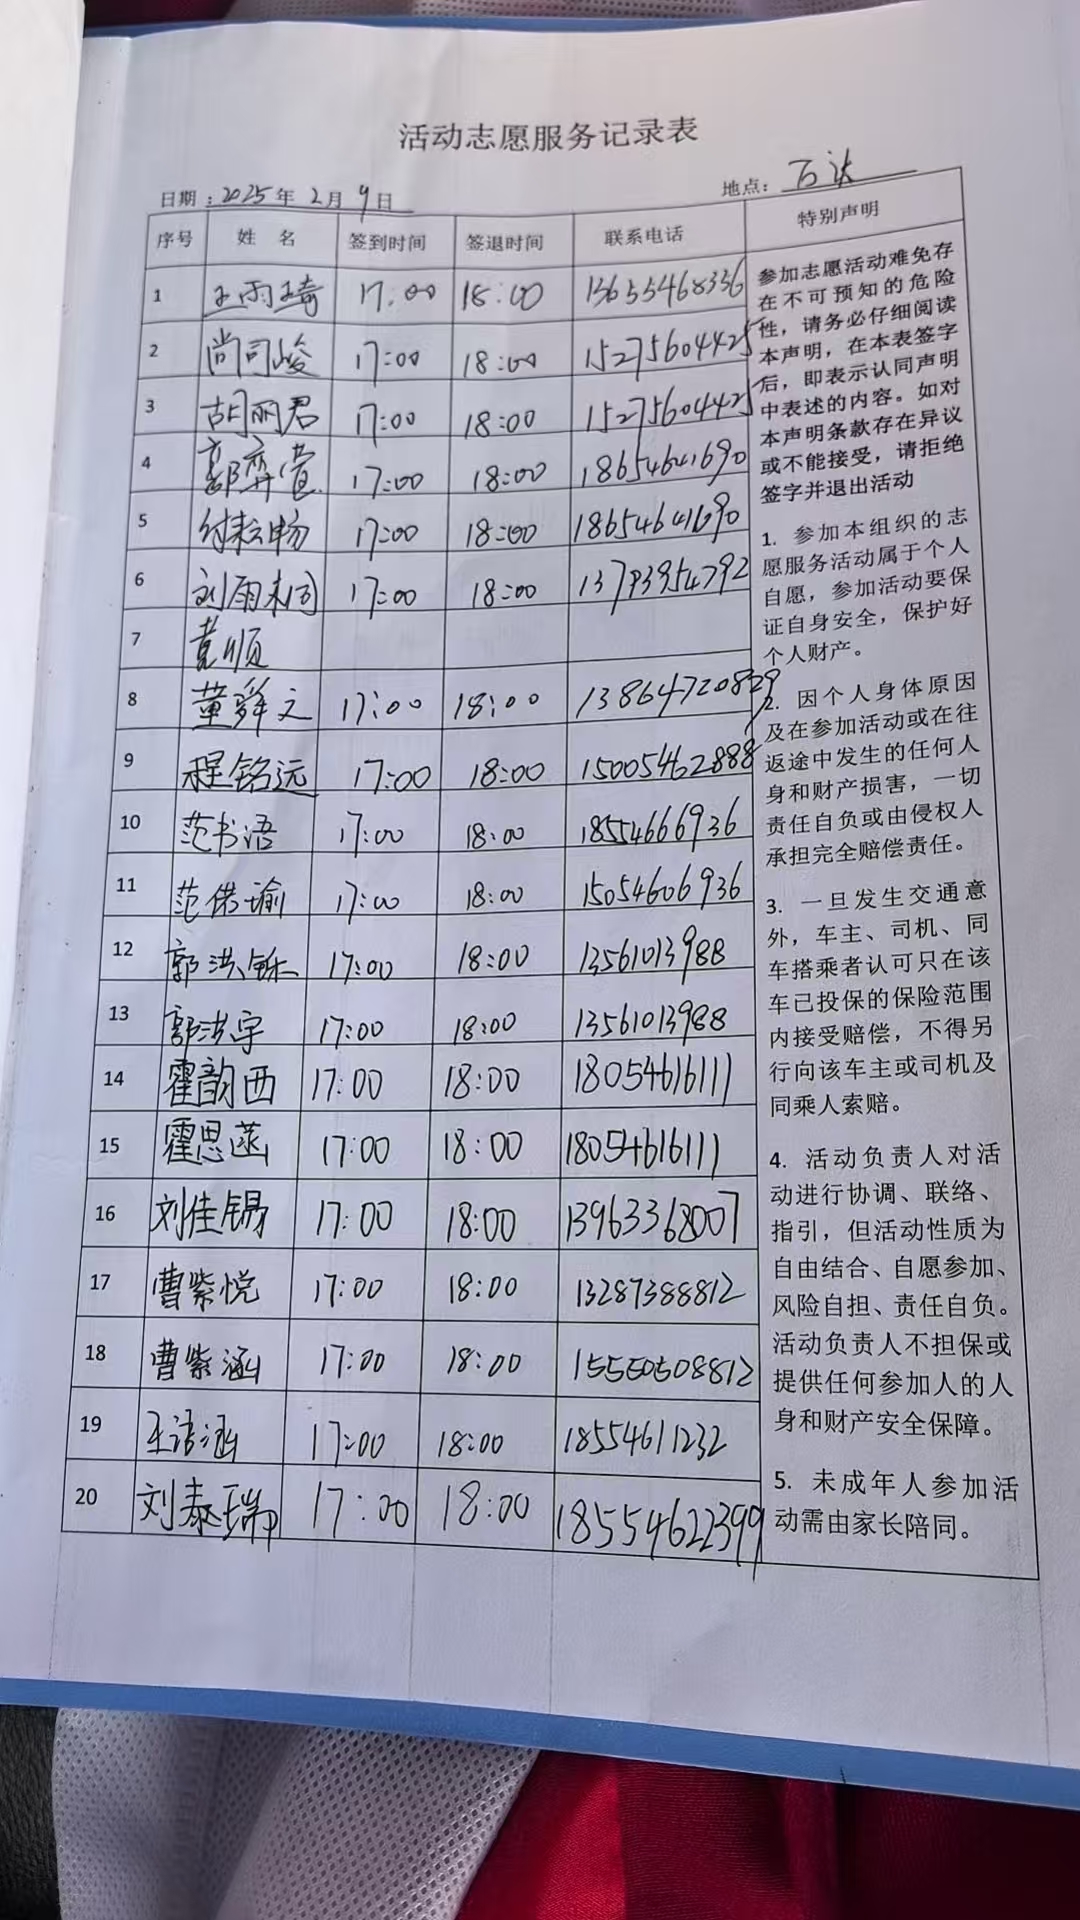 活动志愿服务记录表
日期：2025年 2月 9日
地点：万达
序号 姓 名 签到时间 签退时间 联系电话 特别声明
1 王雨琦 17:00 18:00 13655468336
2 尚司峻 17:00 18:00 15275604425
3 胡丽君 17:00 18:00 15275604425
4 郭弈萱 17:00 18:00 18654641690
5 付耘畅 17:00 18:00 18654641690
6 刘雨桐 17:00 18:00 13793954792
7
8 董舜文 17:00 18:00 13864720829
9 程铭远 17:00 18:00 15005462888
10 范书语 17:00 18:00 18554666936
11 范偌瑜 17:00 18:00 15054606936
12 郭洪铄 17:00 18:00 13561013988
13 郭洪宇 17:00 18:00 13561013988
14 霍韵西 17:00 18:00 18054616111
15 霍思菡 17:00 18:00 18054616111
16 刘佳锡 17:00 18:00 13963368007
17 曹紫悦 17:00 18:00 13287388812
18 曹紫涵 17:00 18:00 15550508812
19 王语涵 17:00 18:00 18554611232
20 刘泰瑞 17:00 18:00 18554622399
参加志愿活动难免存
在不可预知的危险
性，请务必仔细阅读
本声明，在本表签字
后，即表示认同声明
中表述的内容。如对
本声明条款存在异议
或不能接受，请拒绝
签字并退出活动
1. 参加本组织的志
愿服务活动属于个人
自愿，参加活动要保
证自身安全，保护好
个人财产。
2. 因个人身体原因
及在参加活动或在往
返途中发生的任何人
身和财产损害，一切
责任自负或由侵权人
承担完全赔偿责任。
3. 一旦发生交通意
外，车主、司机、同
车搭乘者认可只在该
车已投保的保险范围
内接受赔偿，不得另
行向该车主或司机及
同乘人索赔。
4. 活动负责人对活
动进行协调、联络、
指引，但活动性质为
自由结合、自愿参加、
风险自担、责任自负。
活动负责人不担保或
提供任何参加人的人
身和财产安全保障。
5. 未成年人参加活
动需由家长陪同。